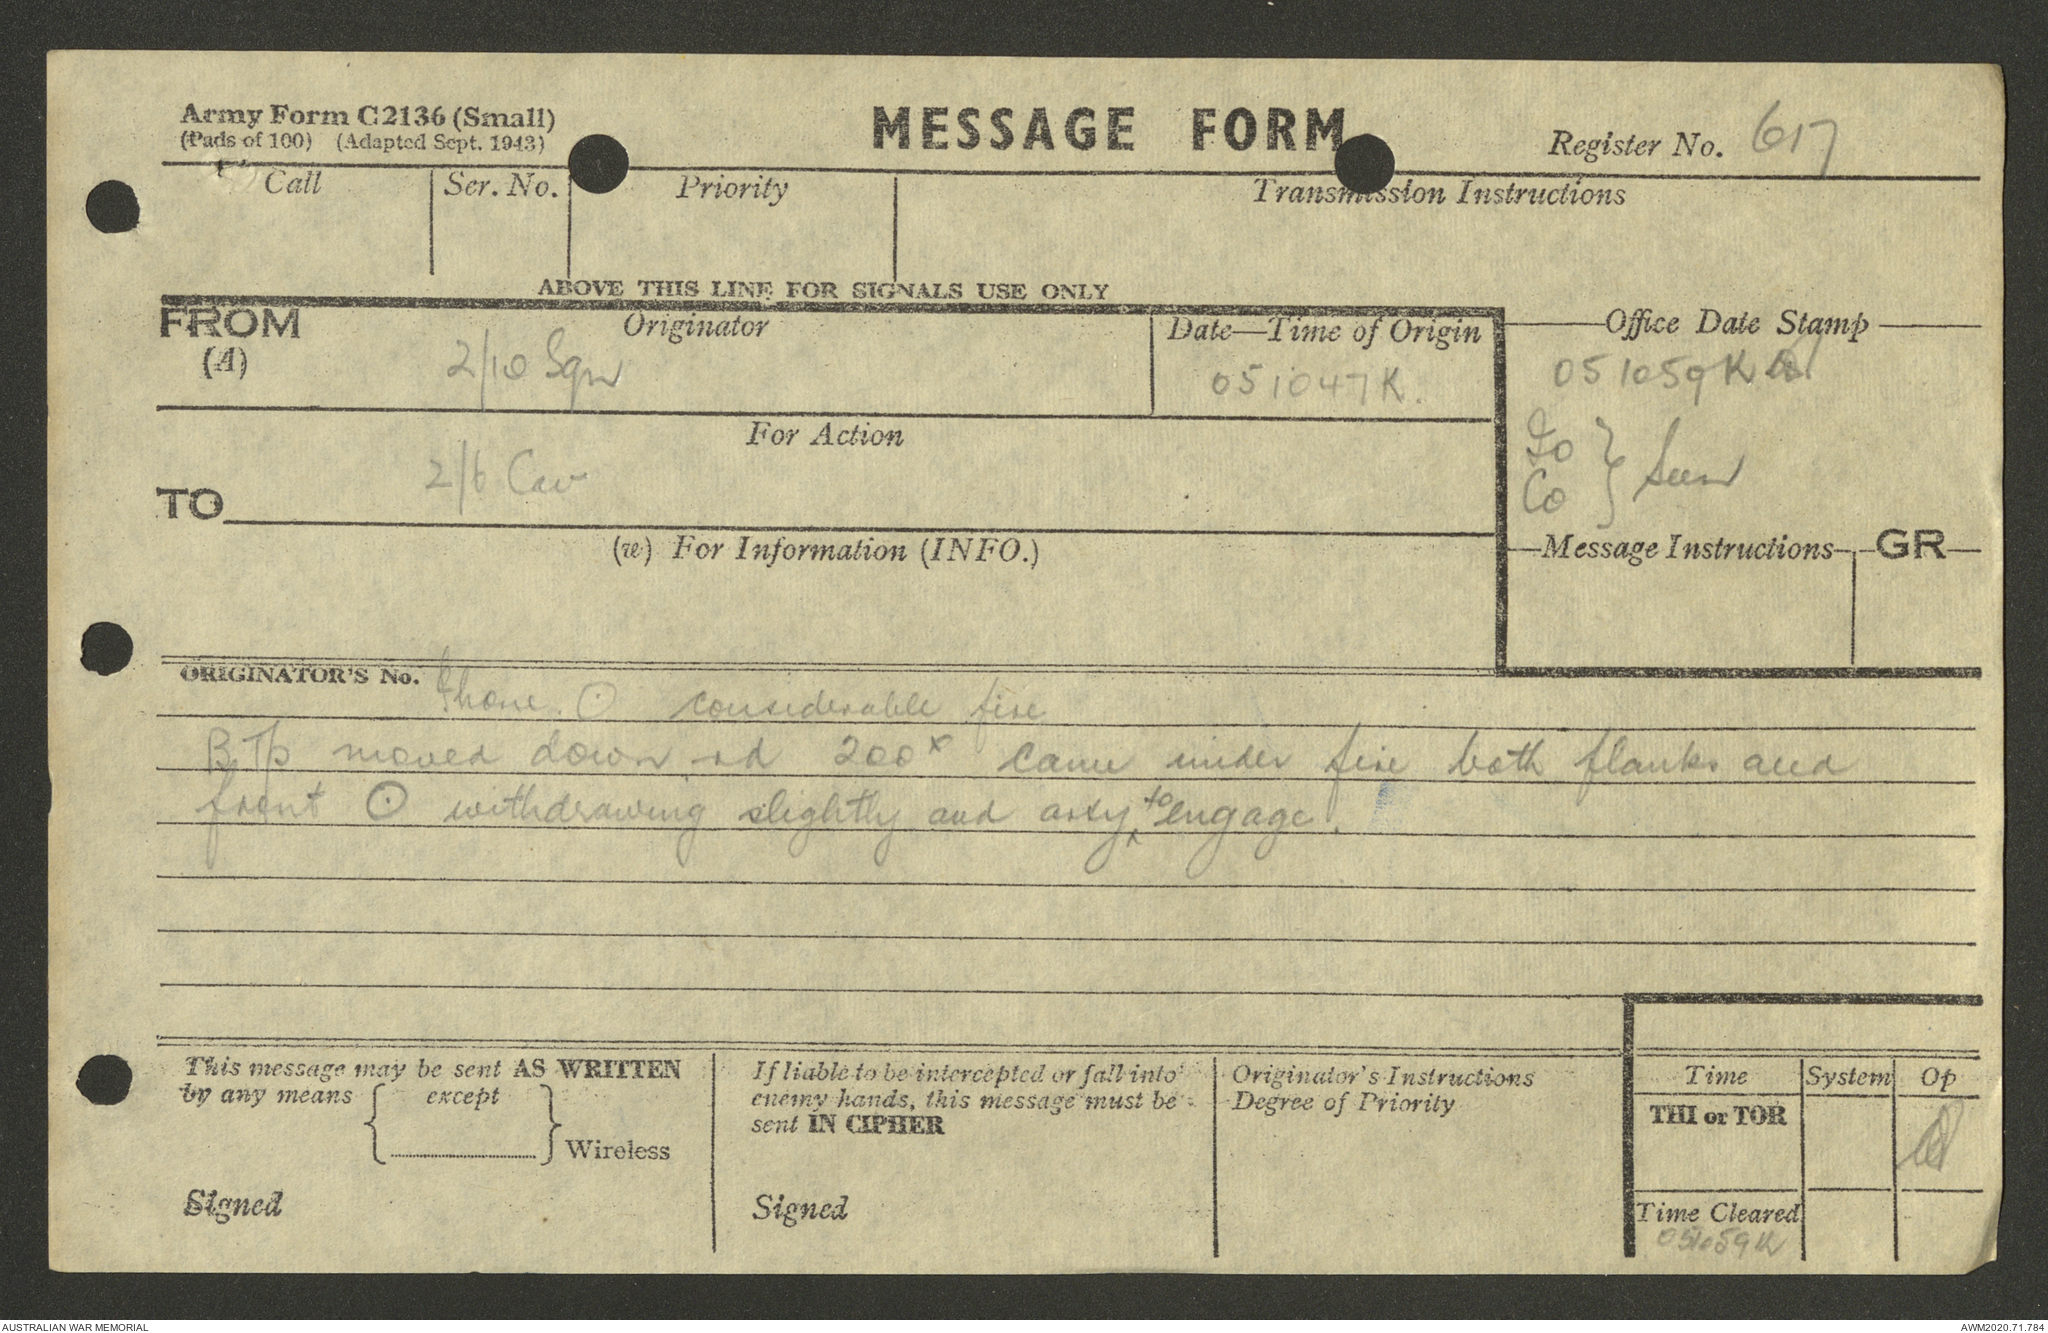 Army Form C2136 (Small)
(Pads of 100) (Adapted Sept. 1943)
MESSAGE FORM
Register No. 617
Call
Ser. No.
Priority
Transmission Instructions
ABOVE THIS LINE FOR SIGNALS USE ONLY
FROM
(A)
Originator
2/10 Sqn
Date—Time of Origin
051047K.
Office Date Stamp
051059K
IO
CO } Seen
For Action
TO
2/6 Cav
(w) For Information (INFO.)
Message Instructions
GR
ORIGINATOR'S No.
Phone. ⊙ considerable fire
B Tp moved down rd 200x came under fire both flanks and
front ⊙ withdrawing slightly and arty to engage.
This message may be sent AS WRITTEN
by any means { except } Wireless
Signed
If liable to be intercepted or fall into
enemy hands, this message must be
sent IN CIPHER
Signed
Originator's Instructions
Degree of Priority
Time
System
Op
THI or TOR
Time Cleared
051059K
AUSTRALIAN WAR MEMORIAL
AWM2020.71.784